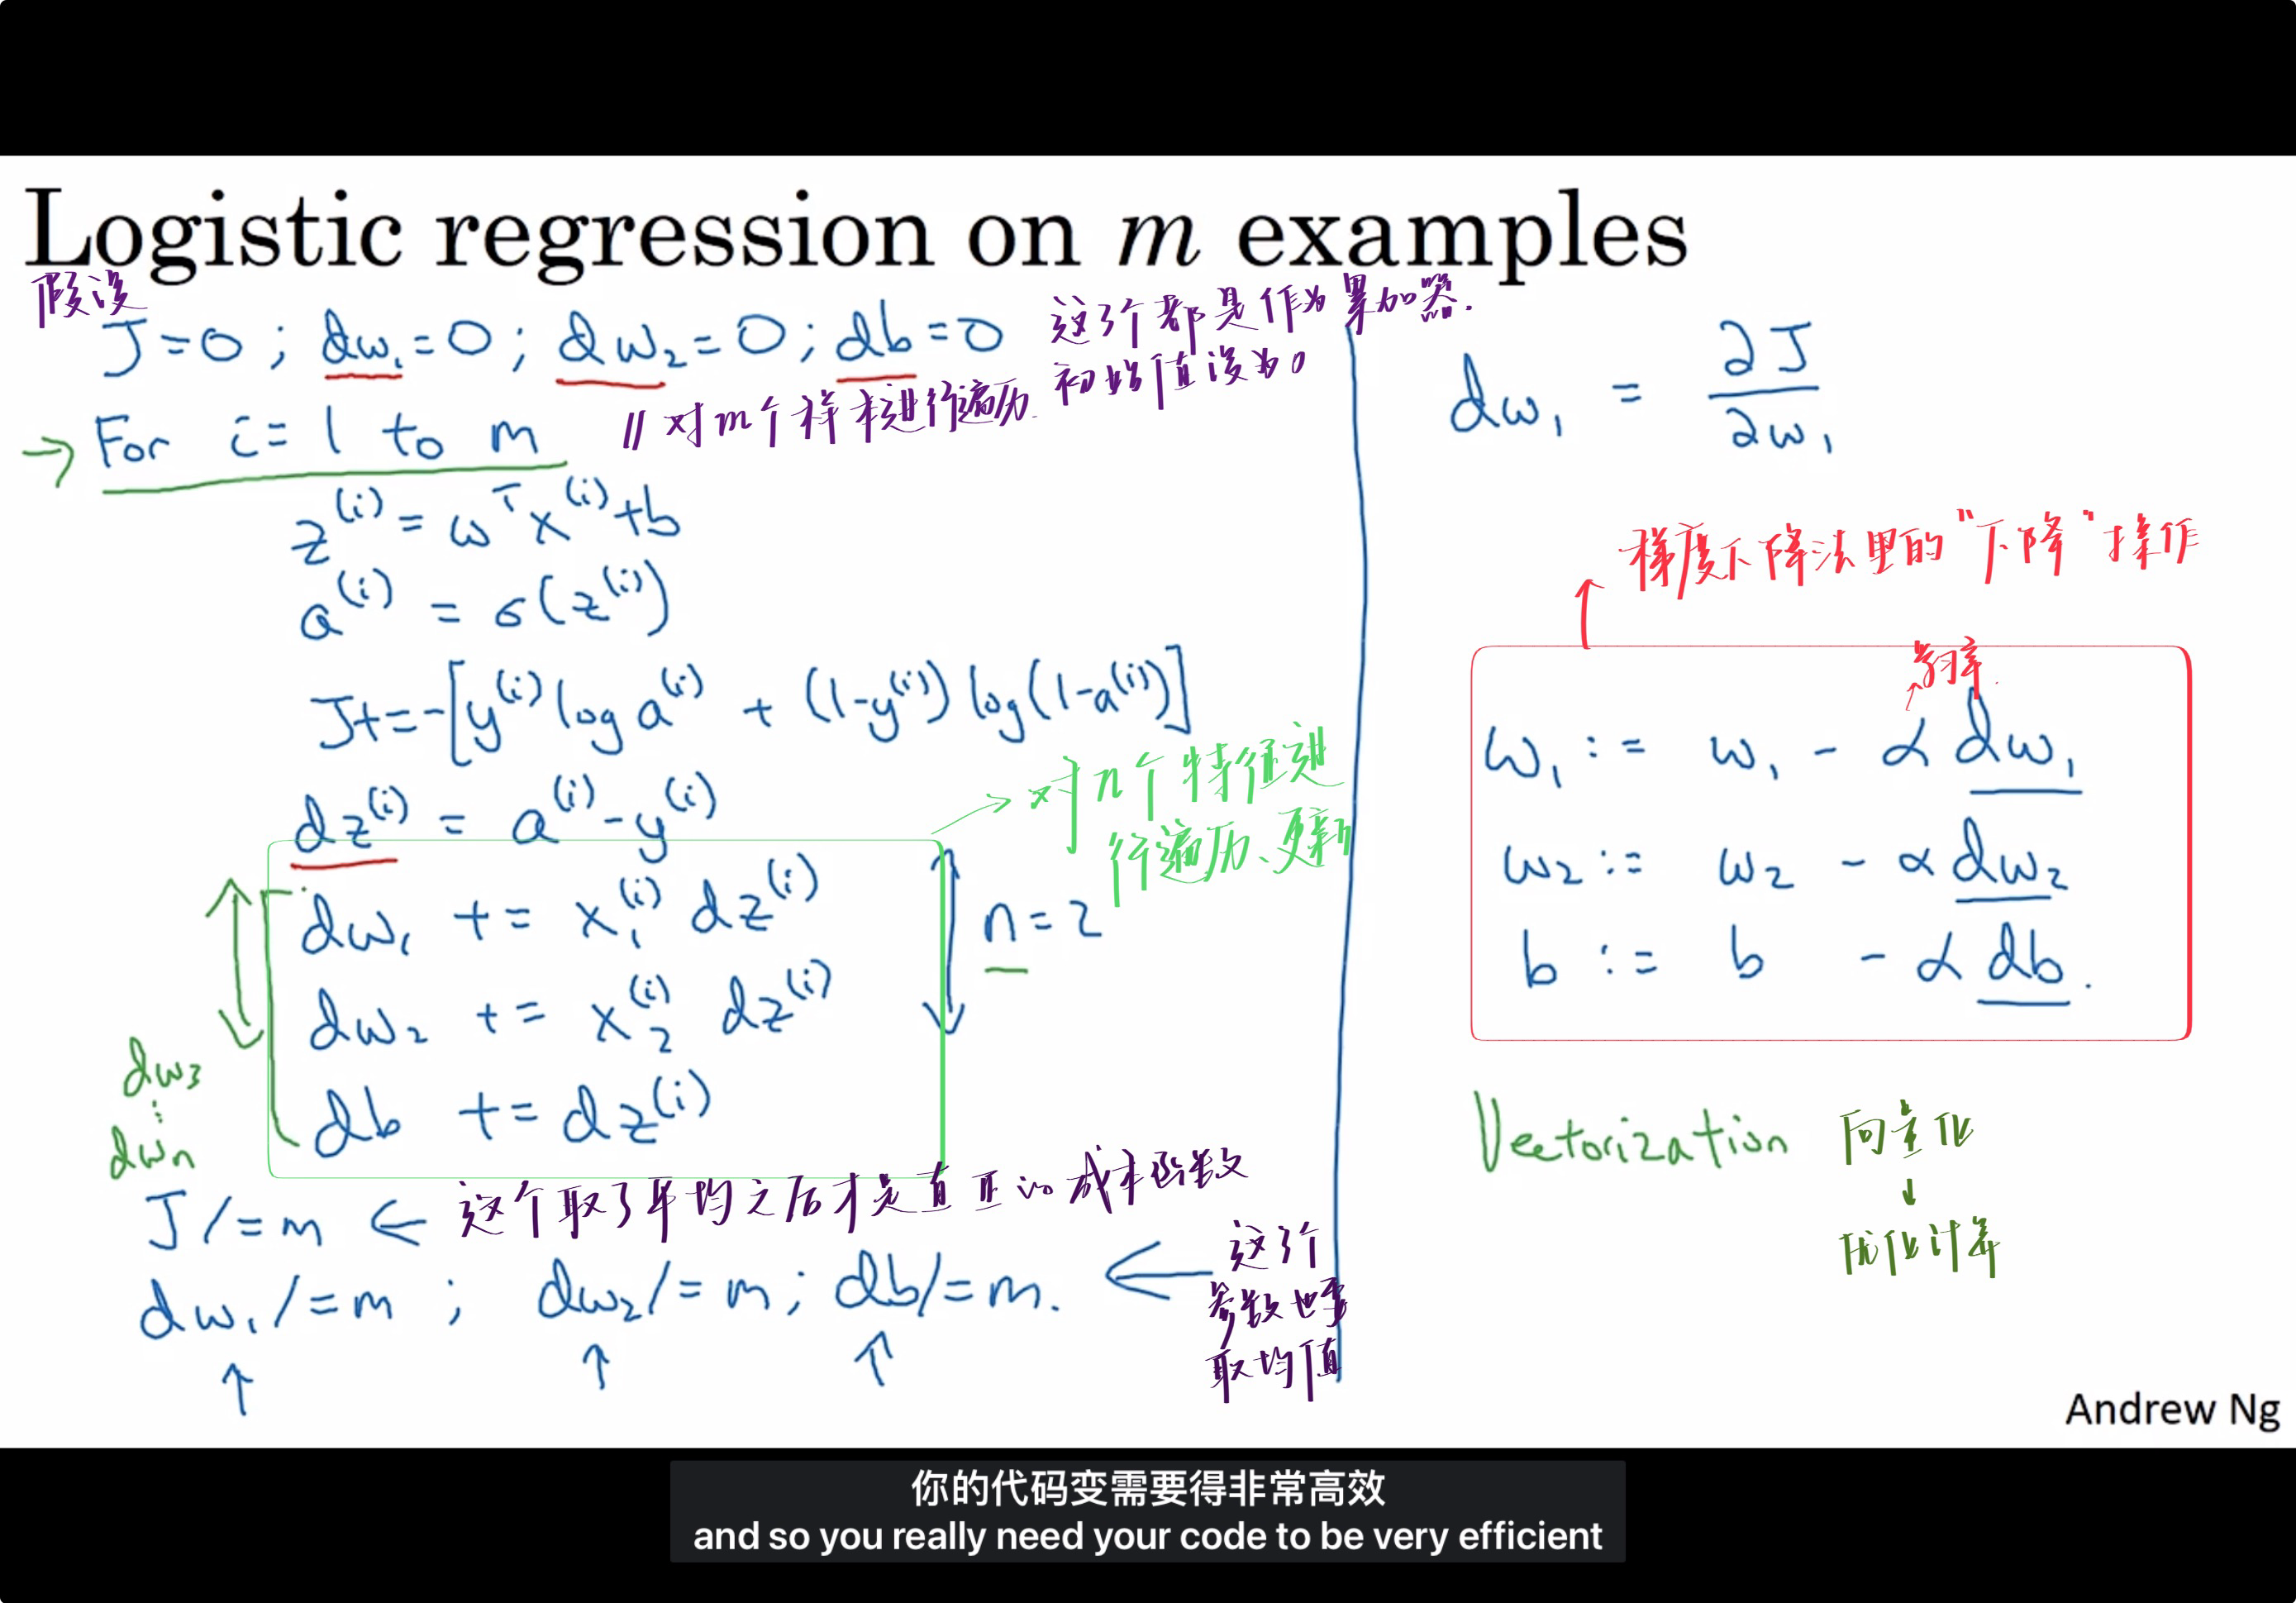 Logistic regression on m examples
假设
J=0; dw₁=0; dw₂=0; db=0
这3个都是作为累加器.
初始值设为0
→ For i=1 to m
// 对m个样本进行遍历.
z⁽ⁱ⁾ = wᵀx⁽ⁱ⁾+b
a⁽ⁱ⁾ = σ(z⁽ⁱ⁾)
J+=-[y⁽ⁱ⁾ log a⁽ⁱ⁾ + (1-y⁽ⁱ⁾) log(1-a⁽ⁱ⁾)]
dz⁽ⁱ⁾ = a⁽ⁱ⁾-y⁽ⁱ⁾
→ 对n个特征进
行遍历、更新
dw₁ += x₁⁽ⁱ⁾ dz⁽ⁱ⁾
n=2
dw₂ += x₂⁽ⁱ⁾ dz⁽ⁱ⁾
db += dz⁽ⁱ⁾
dw₃
⋮
dwₙ
J/=m ← 这个取了平均之后才是真正的成本函数
dw₁/=m; dw₂/=m; db/=m. ←
这3个
参数也要
取均值
dw₁ = ∂J/∂w₁
梯度下降法里的"下降"操作
学习率.
w₁ := w₁ - α dw₁
w₂ := w₂ - α dw₂
b := b - α db.
Vectorization 向量化
↓
优化计算
Andrew Ng
你的代码变需要得非常高效
and so you really need your code to be very efficient